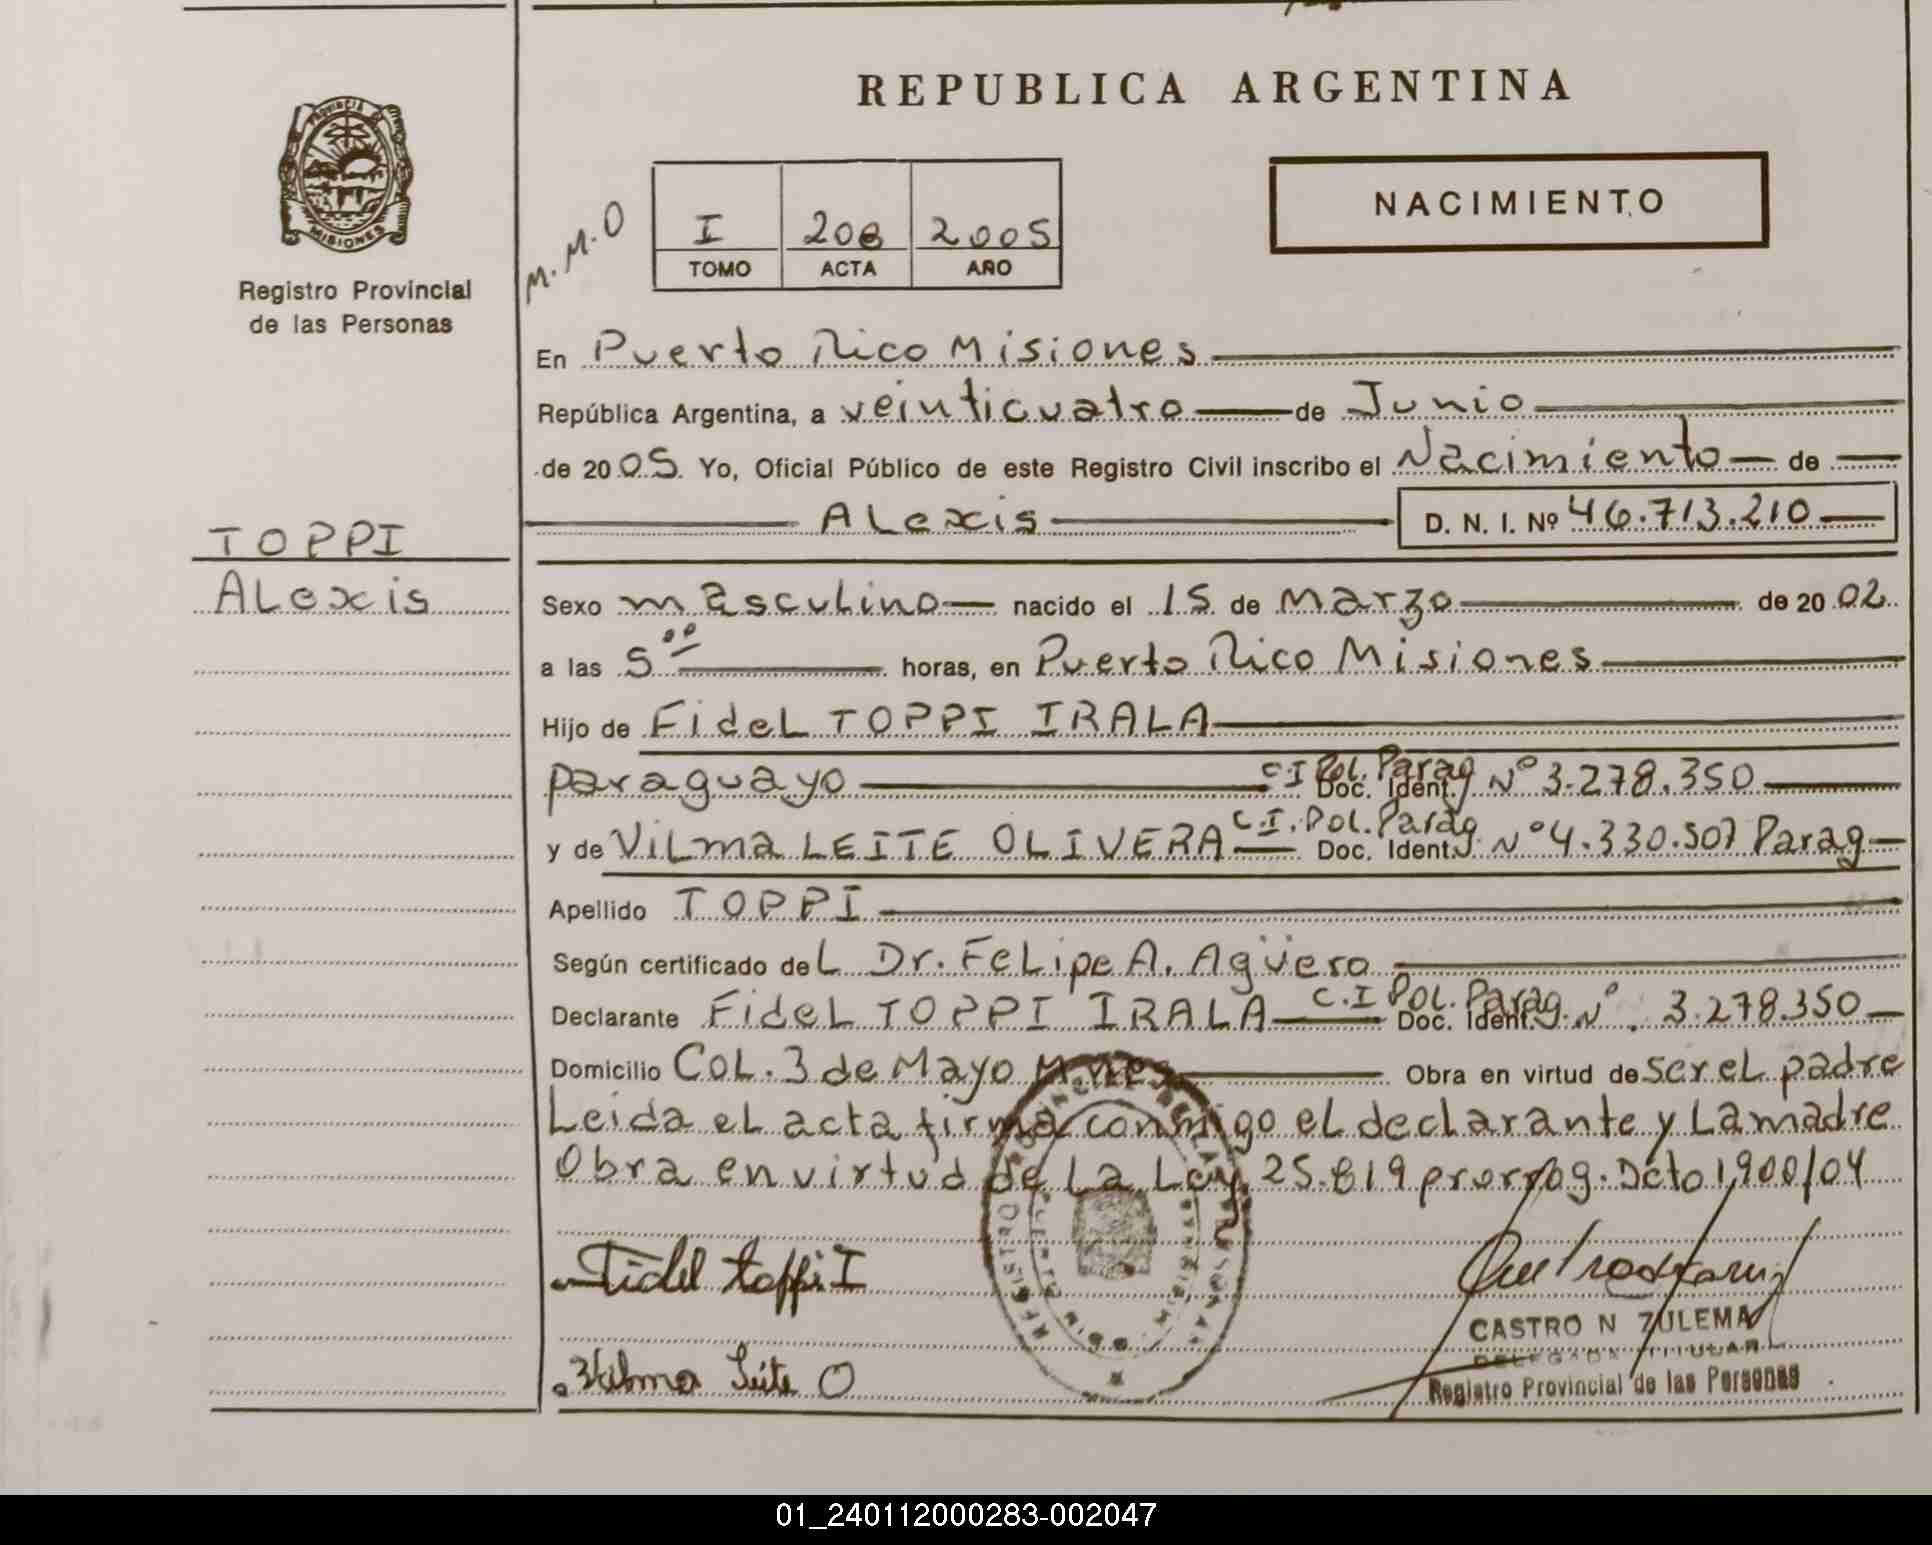 REPUBLICA ARGENTINA
PROVINCIA
MISIONES
Registro Provincial
de las Personas
M.M.O
I 208 2005
TOMO ACTA AÑO
NACIMIENTO
En Puerto Rico Misiones
República Argentina, a veinticuatro de Junio
de 2005. Yo, Oficial Público de este Registro Civil inscribo el Nacimiento de
Alexis D. N. I. Nº 46.713.210
TOPPI
Alexis
Sexo masculino nacido el 15 de Marzo de 2002
a las 5 00 horas, en Puerto Rico Misiones
Hijo de Fidel TOPPI IRALA
paraguayo C.I Pol. Parag Doc. Ident. Nº 3.278.350
y de Vilma LEITE OLIVERA C.I. Pol. Parag Doc. Ident. Nº 4.330.507 Parag
Apellido TOPPI
Según certificado del Dr. Felipe A. Agüero
Declarante Fidel TOPPI IRALA C.I Pol. Parag. Doc. Ident. Nº 3.278.350
Domicilio Col. 3 de Mayo Mnes Obra en virtud de ser el padre
Leida el acta firma conmigo el declarante y la madre
Obra en virtud de la Ley 25.819 prorrog. Dcto 1,900/04
Fidel toppi I
Vilma Leite O
CASTRO N ZULEMA
DELEGADA TITULAR
Registro Provincial de las Personas
01_240112000283-002047